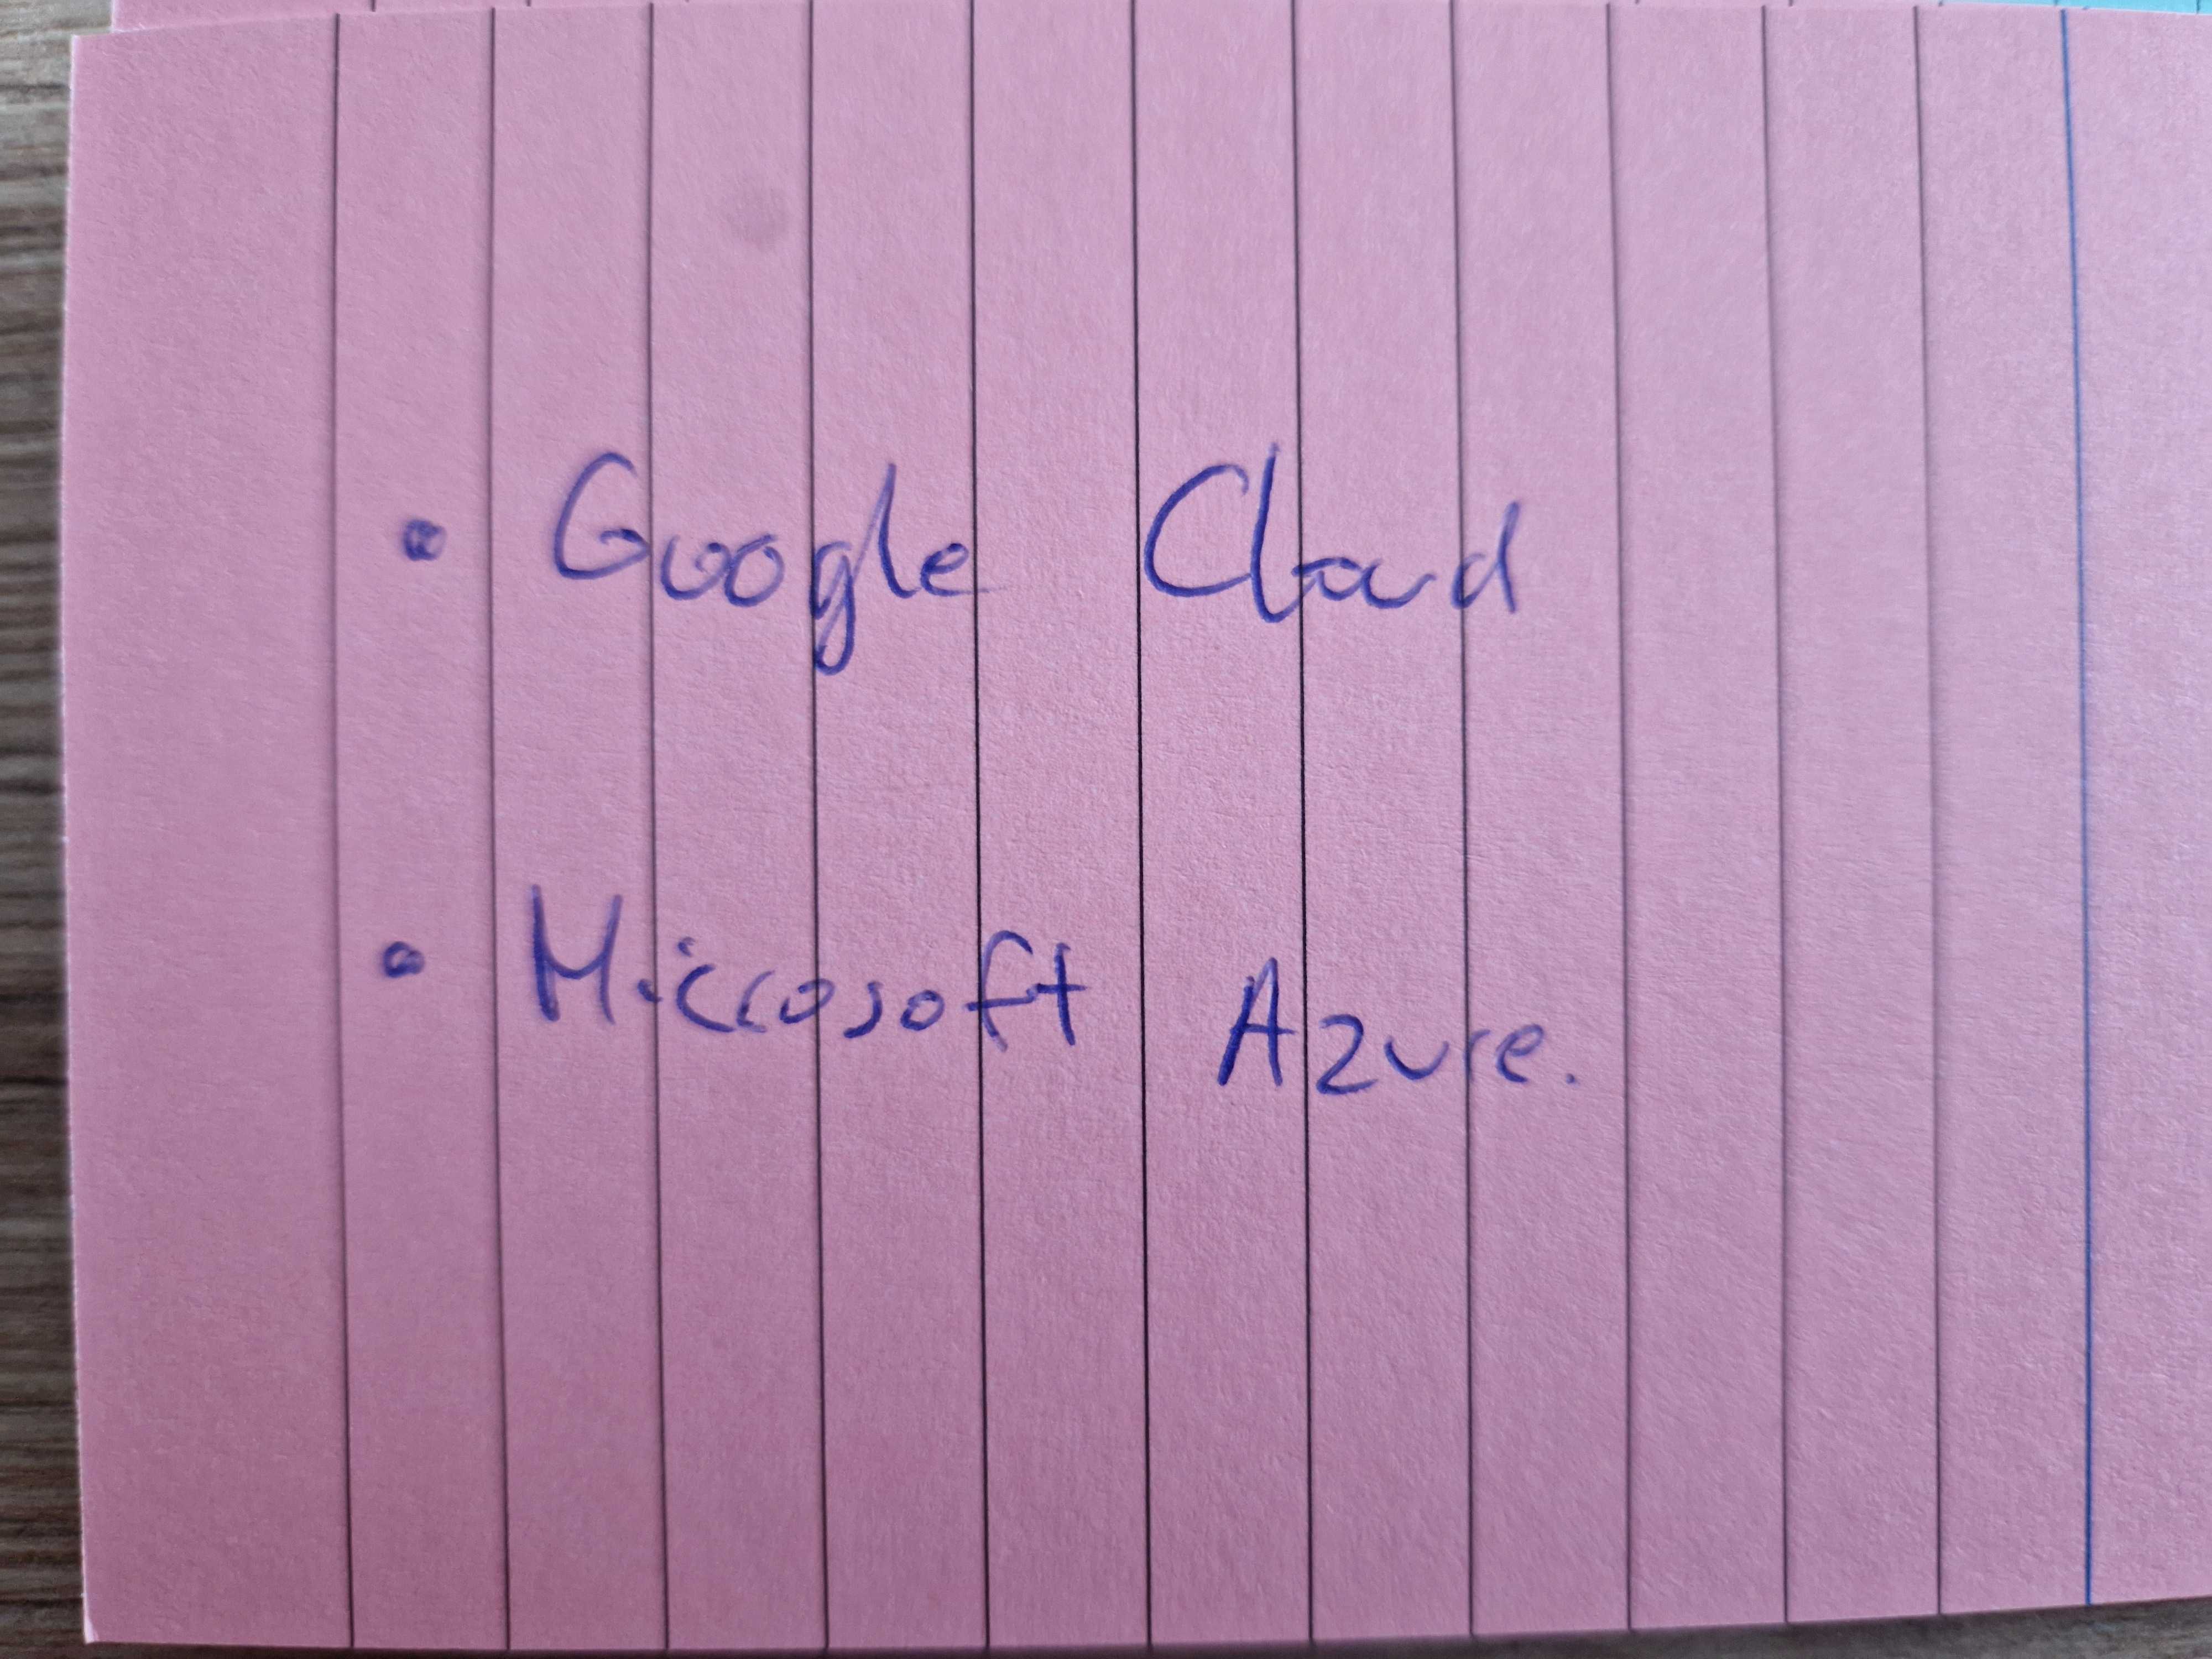 • Google Cloud
• Microsoft Azure.